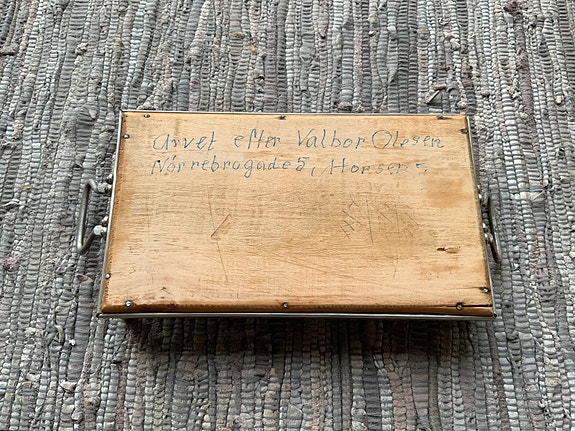 Arvet efter Valbor Olesen
Nørrebrogade 5, Horsens,